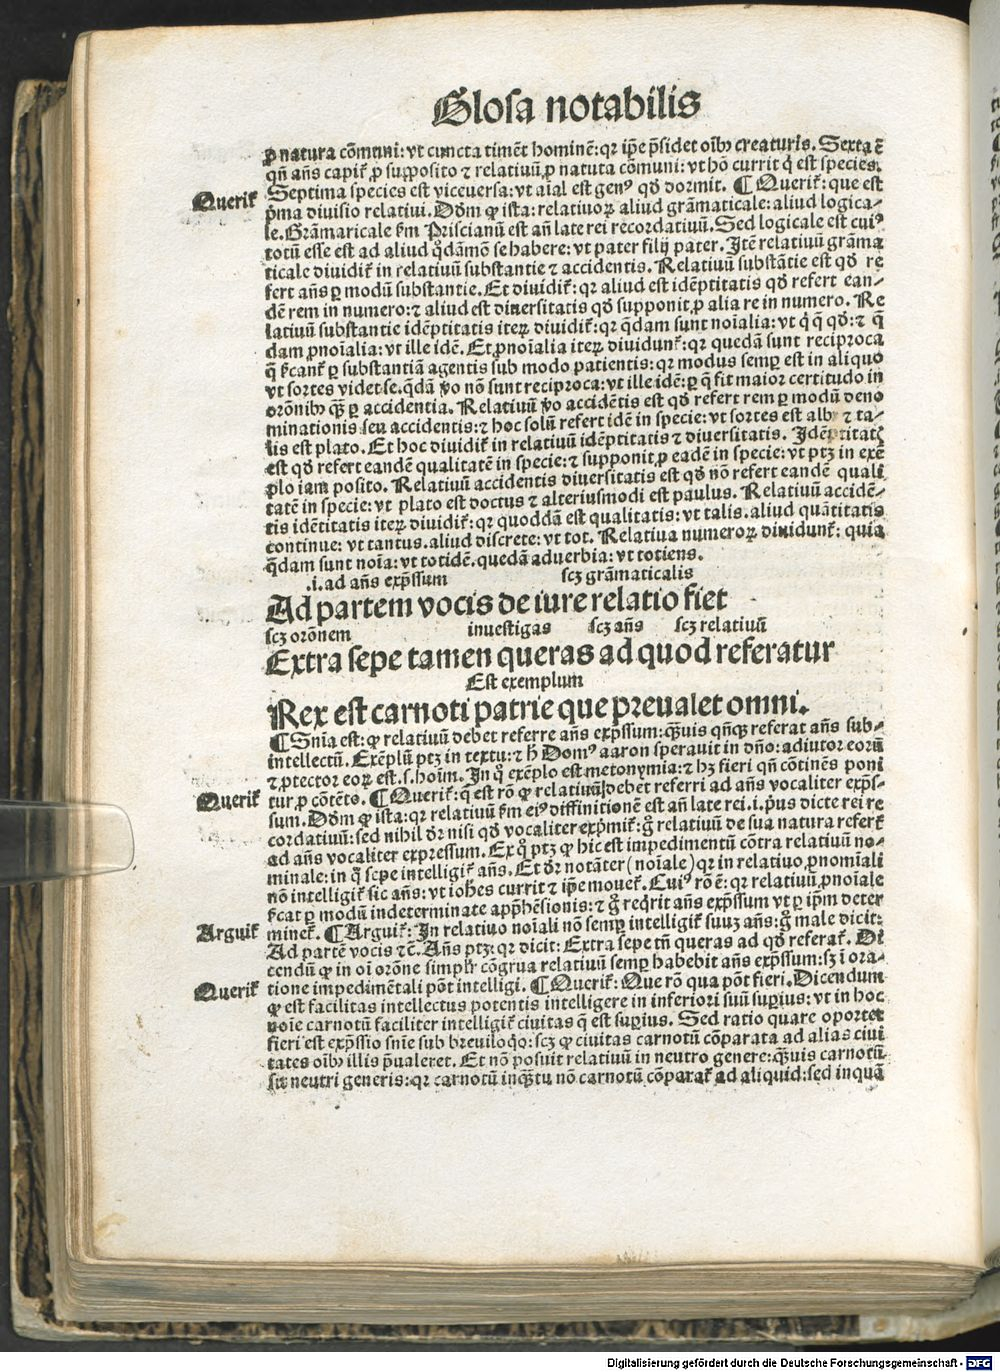 Glosa notabilis
ꝓ natura cōmuni: vt cuncta timēt hominē: qꝛ ip̄e p̄sidet oībꝰ creaturis. Sexta ē
qn̄ an̄s capit᷑ ꝓ supposito ⁊ relatiuū ꝓ natura cōmuni: vt hō currit q̇ est species.
Septima species est viceuersa: vt aīal est genꝰ qd̄ dormit. ¶ Querit᷑: que est
Querit᷑
pͥma diuisio relatiui. Dd̄m ꝙ ista: relatiuoꝝ aliud grāmaticale: aliud logica⸗
le. Grāmaricale ẜm Priscianū est an̄ late rei recordatiuū. Sed logicale est cuiꝰ
totū esse est ad aliud qͦdāmō se habere: vt pater filij pater. Itē relatiuū grāma
ticale diuidit᷑ in relatiuū substantie ⁊ accidentis. Relatiuū substātie est qd̄ re
fert an̄s ꝑ modū substantie. Et diuidit᷑: qꝛ aliud est idēptitatis qd̄ refert ean⸗
dē rem in numero: ⁊ aliud est diuersitatis qd̄ supponit ꝓ alia re in numero. Re
latiuū substantie idēptitatis iteꝝ diuidit᷑: qꝛ q̄dam sunt noīalia: vt q̇ q̄ qd̄: ⁊ q̄
dam ꝓnoīalia: vt ille idē. Et ꝓnoīalia iteꝝ diuidunt᷑: qꝛ quedā sunt reciproca
q̄ ẜcant᷑ ꝑ substantiā agentis sub modo patientis: qꝛ modus semꝑ est in aliquo
vt sortes videt se. q̄dā ꝟo nō sunt reciproca: vt ille idē: ꝑ q̄ fit maior certitudo in
orōnibꝰ qͣꝫ ꝑ accidentia. Relatiuū ꝟo accidētis est qd̄ refert rem ꝑ modū deno
minationis seu accidentis: ⁊ hoc solū refert idē in specie: vt sortes est albꝰ ⁊ ta⸗
lis est plato. Et hoc diuidit᷑ in relatiuū idēptitatis ⁊ diuersitatis. Idēptitatꝭ
est qd̄ refert eandē qualitatē in specie: ⁊ supponit ꝓ eadē in specie: vt ptꝫ in exē
plo iam posito. Relatiuū accidentis diuersitatis est qd̄ nō refert eandē quali
tatē in specie: vt plato est doctus ⁊ alteriusmodi est paulus. Relatiuū accidē⸗
tis idētitatis iteꝝ diuidit᷑: qꝛ quoddā est qualitatis: vt talis. aliud quātitatis
continue: vt tantus. aliud discrete: vt tot. Relatiua numeroꝝ diuidunt᷑: quia
q̄dam sunt noīa: vt totidē. quedā aduerbia: vt totiens.
.i. ad an̄s exp̄ssum scꝫ grāmaticalis
Ad partem vocis de iure relatio fiet
scꝫ orōnem inuestigas scꝫ an̄s scꝫ relatiuū
Extra sepe tamen queras ad quod referatur
Est exemplum
Rex est carnoti patrie que preualet omni.
¶ Sn̄ia est: ꝙ relatiuū debet referre an̄s exp̄ssum: qͣꝫuis qn̄qꝫ referat an̄s sub⸗
intellectū. Exēplū ptꝫ in textu: ⁊ h̄ Domꝰ aaron sperauit in dn̄o: adiutor eorū
⁊ ꝓtector eoꝝ est. s. hoīm. In qͦ exēplo est metonymia: ⁊ hꝫ fieri qn̄ cōtinēs poni
Querit᷑
tur ꝓ cōtēto. ¶ Querit᷑: q̄ est rō ꝙ relatiuū debet referri ad an̄s vocaliter exp̄s⸗
sum. Dd̄m ꝙ ista: qꝛ relatiuū ẜm eiꝰ diffinitionē est an̄ late rei .i. pͥus dicte rei re
cordatiuū: sed nihil dr̄ nisi qd̄ vocaliter exp̄mit᷑: gͦ relatiuū de sua natura refert᷑
ad an̄s vocaliter expressum. Ex qͦ ptꝫ ꝙ hic est impedimentū cōtra relatiuū no⸗
minale: in qͦ sepe intelligit᷑ an̄s. Et dr̄ notāter (noīale) qꝛ in relatiuo ꝓnomīali
nō intelligit᷑ sic an̄s: vt iohēs currit ⁊ ip̄e mouet᷑. Cuiꝰ rō ē: qꝛ relatiuū ꝓnoīale
ẜcat ꝑ modū indeterminate app̄hēsionis: ⁊ gͦ reqͥrit an̄s exp̄ssum vt ꝑ ip̄m deter
Arguit᷑
minet᷑. ¶ Arguit᷑: In relatiuo noīali nō semꝑ intelligit᷑ suuꝫ an̄s: gͦ male dicit:
Ad partē vocis ⁊cͣ. An̄s ptꝫ: qꝛ dicit: Extra sepe tn̄ queras ad qd̄ referat᷑. Di
cendū ꝙ in oī orōne simplr̄ cōgrua relatiuū semꝑ habebit an̄s expͥssum: sꝫ ī ora⸗
Querit᷑
tione impedimētali pōt intelligi. ¶ Querit᷑: Que rō qua pōt fieri. Dicendum
ꝙ est facilitas intellectus potentis intelligere in inferiori suū suꝑius: vt in hoc
noīe carnotū faciliter intelligit᷑ ciuitas q̄ est suꝑius. Sed ratio quare oportet
fieri est exp̄ssio sn̄ie sub breuiloqͦ: scꝫ ꝙ ciuitas carnotū cōparata ad alias ciui
tates oībꝰ illis p̄ualeret. Et nō posuit relatiuū in neutro genere: qͣꝫuis carnotū
sit neutri generis: qꝛ carnotū inqͣꝫtū nō carnotū cōparat᷑ ad aliquid: sed inquā
Digitalisierung gefördert durch die Deutsche Forschungsgemeinschaft - DFG